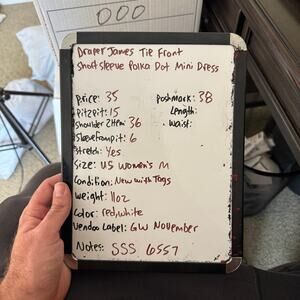 000
Draper James Tie Front
Short Sleeve Polka Dot Mini Dress
Price: 35
Poshmark: 38
Pit2Pit: 15
Length:
Shoulder 2 Hem: 36
Waist:
Sleeve from pit: 6
Stretch: Yes
Size: US Women's M
Condition: New with Tags
Weight: 11oz
Color: red/white
Vendoo Label: GW November
Notes: SSS 6557